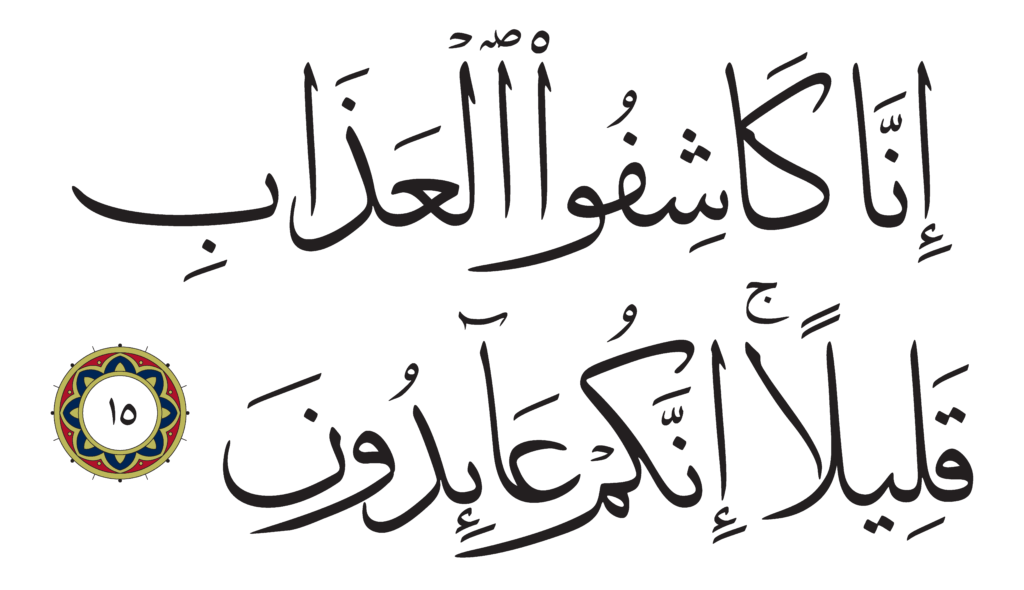 إِنَّا كَاشِفُوا۟ ٱلْعَذَابِ
قَلِيلًا ۚ إِنَّكُمْ عَآئِدُونَ ١٥